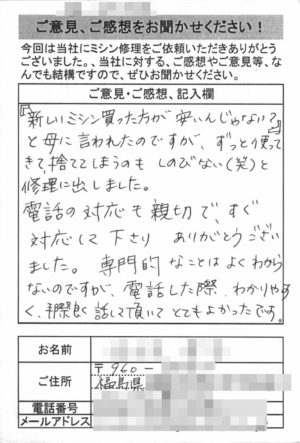 ご意見、ご感想をお聞かせください！
今回は当社にミシン修理をご依頼いただきありがとう
ございました。、当社に対する、ご感想やご意見等、な
んでも結構ですので、ぜひお聞かせください。
ご意見・ご感想、記入欄
『新しいミシン買った方が安いんじゃない？』
と母に言われたのですが、ずっと使って
きて捨ててしまうのもしのびない(笑)と
修理に出しました。
電話の対応も親切で、すぐ
対応して下さり ありがとうござい
ました。専門的なことはよくわから
ないのですが、電話した際、わかりやす
く、手際良く話して頂いてとてもよかったです。
お名前
ご住所
〒960－
福島県
電話番号
メールアドレス